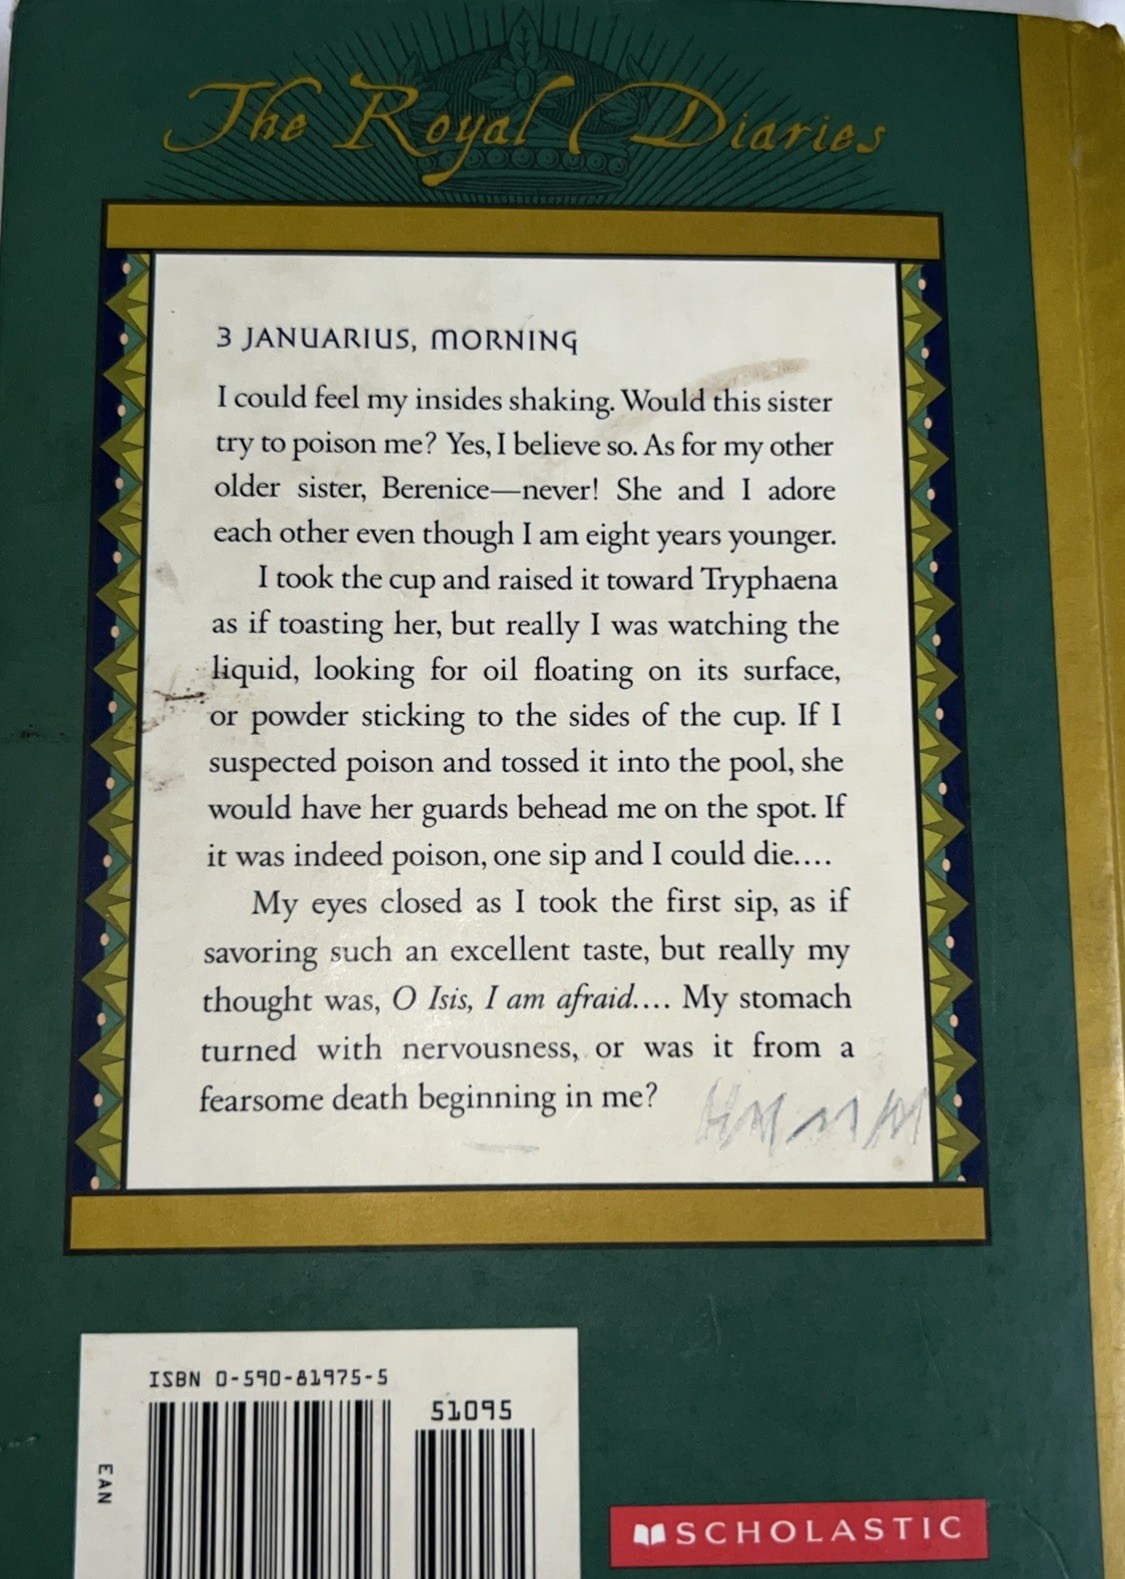 The Royal Diaries
3 JANUARIUS, MORNING
I could feel my insides shaking. Would this sister
try to poison me? Yes, I believe so. As for my other
older sister, Berenice—never! She and I adore
each other even though I am eight years younger.
I took the cup and raised it toward Tryphaena
as if toasting her, but really I was watching the
liquid, looking for oil floating on its surface,
or powder sticking to the sides of the cup. If I
suspected poison and tossed it into the pool, she
would have her guards behead me on the spot. If
it was indeed poison, one sip and I could die....
My eyes closed as I took the first sip, as if
savoring such an excellent taste, but really my
thought was, O Isis, I am afraid.... My stomach
turned with nervousness, or was it from a
fearsome death beginning in me?
ISBN 0-590-81975-5
51095
EAN
SCHOLASTIC